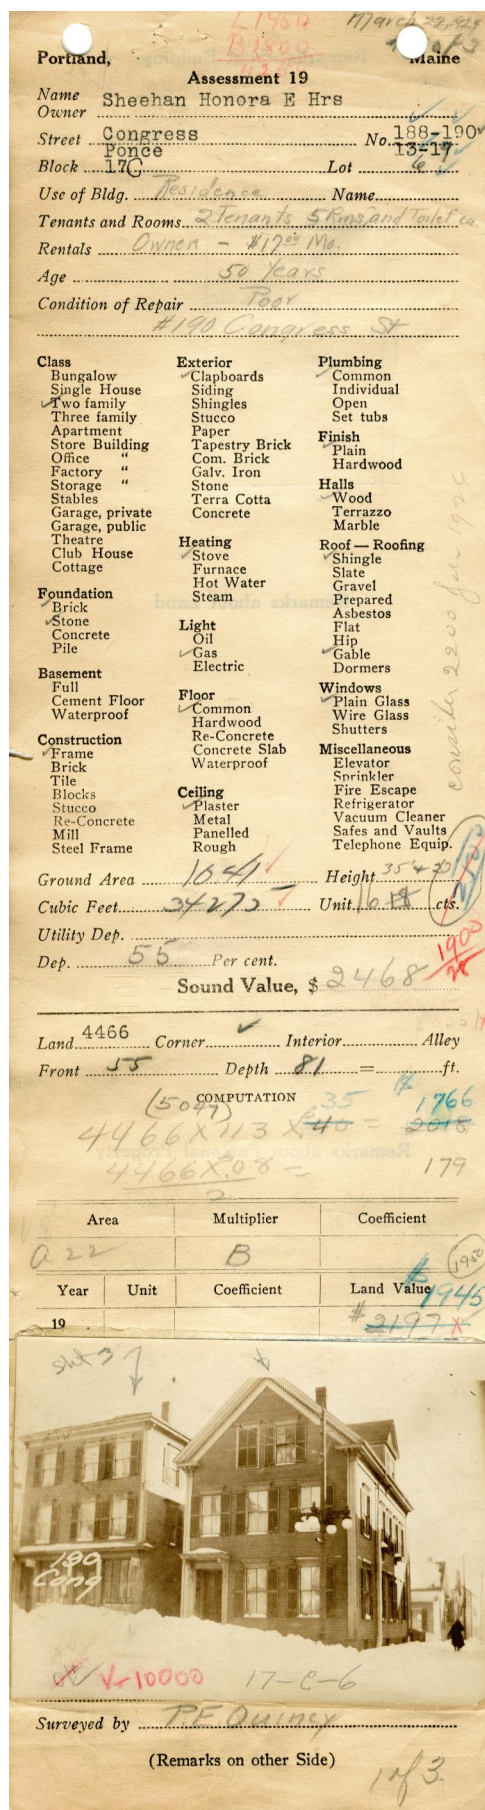 L 1950
B 2800
March 22, 1924
1 of 3
Portland, Maine
Assessment 19
Name
Owner Sheehan Honora E Hrs
Street Congress No. 188-190
Ponce 13-17
Block 17C Lot 6
Use of Bldg. Residence Name
Tenants and Rooms 2 Tenants 5 Rms, and Toilet ea.
Rentals Owner - $17.00 Mo.
Age 50 Years
Condition of Repair Poor
#190 Congress St
Class
Bungalow
Single House
Two family
Three family
Apartment
Store Building
Office "
Factory "
Storage "
Stables
Garage, private
Garage, public
Theatre
Club House
Cottage
Foundation
Brick
Stone
Concrete
Pile
Basement
Full
Cement Floor
Waterproof
Construction
Frame
Brick
Tile
Blocks
Stucco
Re-Concrete
Mill
Steel Frame
Exterior
Clapboards
Siding
Shingles
Stucco
Paper
Tapestry Brick
Com. Brick
Galv. Iron
Stone
Terra Cotta
Concrete
Heating
Stove
Furnace
Hot Water
Steam
Light
Oil
Gas
Electric
Floor
Common
Hardwood
Re-Concrete
Concrete Slab
Waterproof
Ceiling
Plaster
Metal
Panelled
Rough
Plumbing
Common
Individual
Open
Set tubs
Finish
Plain
Hardwood
Halls
Wood
Terrazzo
Marble
Roof — Roofing
Shingle
Slate
Gravel
Prepared
Asbestos
Flat
Hip
Gable
Dormers
Windows
Plain Glass
Wire Glass
Shutters
Miscellaneous
Elevator
Sprinkler
Fire Escape
Refrigerator
Vacuum Cleaner
Safes and Vaults
Telephone Equip.
consider 2200 for 1924
Ground Area 1641 Height 35' & 20
Cubic Feet 34275 Unit 16 cts.
Utility Dep.
Dep. 55 Per cent.
1900
28
Sound Value, $ 2468
Land 4466 Corner Interior Alley
Front 55 Depth 81 = ft.
COMPUTATION
(5047) 35 $ 1766
4466 X 113 X .40 = 2018
4466 X .08 = 179
2
Area Multiplier Coefficient
a 22 B
1950
Year Unit Coefficient Land Value
$ 1945
19 $ 2197 X
sht 3
190
Cong
V-10000 17-C-6
Surveyed by P.E Quincy
(Remarks on other Side)
1 of 3